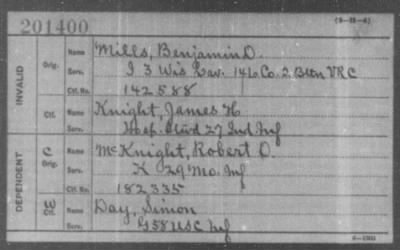 201400
(3-21-4)
INVALID
Orig. Name Mills, Benjamin D.
Serv. I 3 Wis Cav. 146 Co. 2 Bttn VRC
Ctf. No. 142588
Ctf. Name Knight, James H
Serv. Hosp. Stwd 27 Ind Inf
DEPENDENT
C Orig. Name McKnight, Robert O.
Serv. K 29 Mo. Inf
Ctf. No. 182335
W Ctf. Name Day, Simon
Serv. G 58 USC Inf